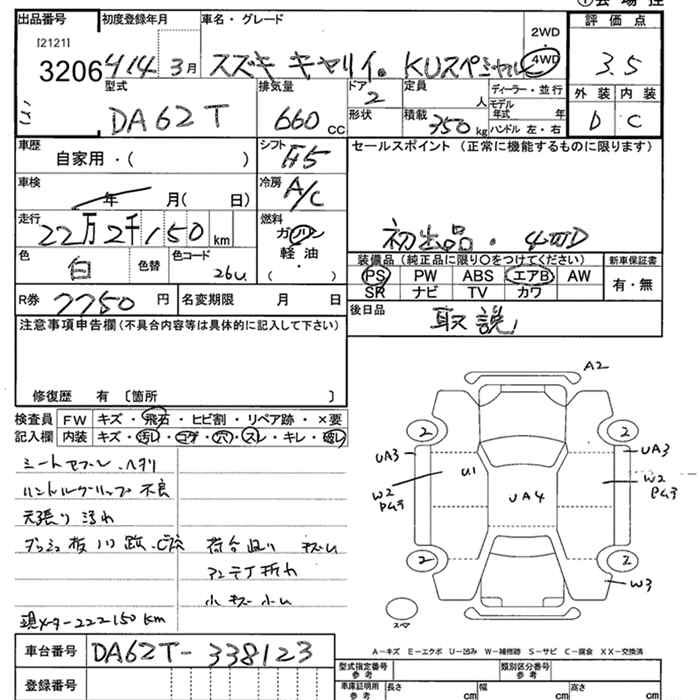 ①会場控
出品番号 初度登録年月 車名・グレード 2WD 評価点
[2121]
3206 414 3月 スズキ キャリイ。 KUスペシャル 4WD 3.5
型式 排気量 ドア 定員 ディーラー・並行 外装 内装
2 人 モデル
DA62T 660 cc 形状 積載 年式 年 D C
350 kg ハンドル 左・右
車歴 シフト セールスポイント (正常に機能するものに限ります)
自家用・( ) F5
車検 冷房
年 月( 日) A/C
走行 燃料
22万2千150 km ガソリン 初出品. 4WD
色 色替 色コード 軽油
白 26U ・( ) 装備品 (純正品に限り○をつけてください) 新車保証書
PS PW ABS エアB AW 有・無
R券 7750 円 名変期限 月 日 SR ナビ TV カワ
注意事項申告欄(不具合内容等は具体的に記入して下さい) 後日品 取説
修復歴 有 〔箇所 〕
A2
検査員 FW キズ・飛石・ヒビ割・リペア跡・×要
記入欄 内装 キズ・汚れ・コゲ・穴・スレ・キレ・破レ
2 2
UA3 U1 UA4 UA3
シートセブレ.ヘタリ W2 W2
ハンドルグリップ不良
天張り汚れ
ダッシュ板 荷台
アンテナ折れ 2 2
W3
小キズ小ム
現メーター222150km スマ
A-キズ E-エクボ U-凹み W-補修跡 S-サビ C-腐食 XX-交換済
車台番号 DA62T-338123
登録番号 型式指定番号 参考 類別区分番号 参考
車庫証明用 参考 長さ cm 幅 cm 高さ cm